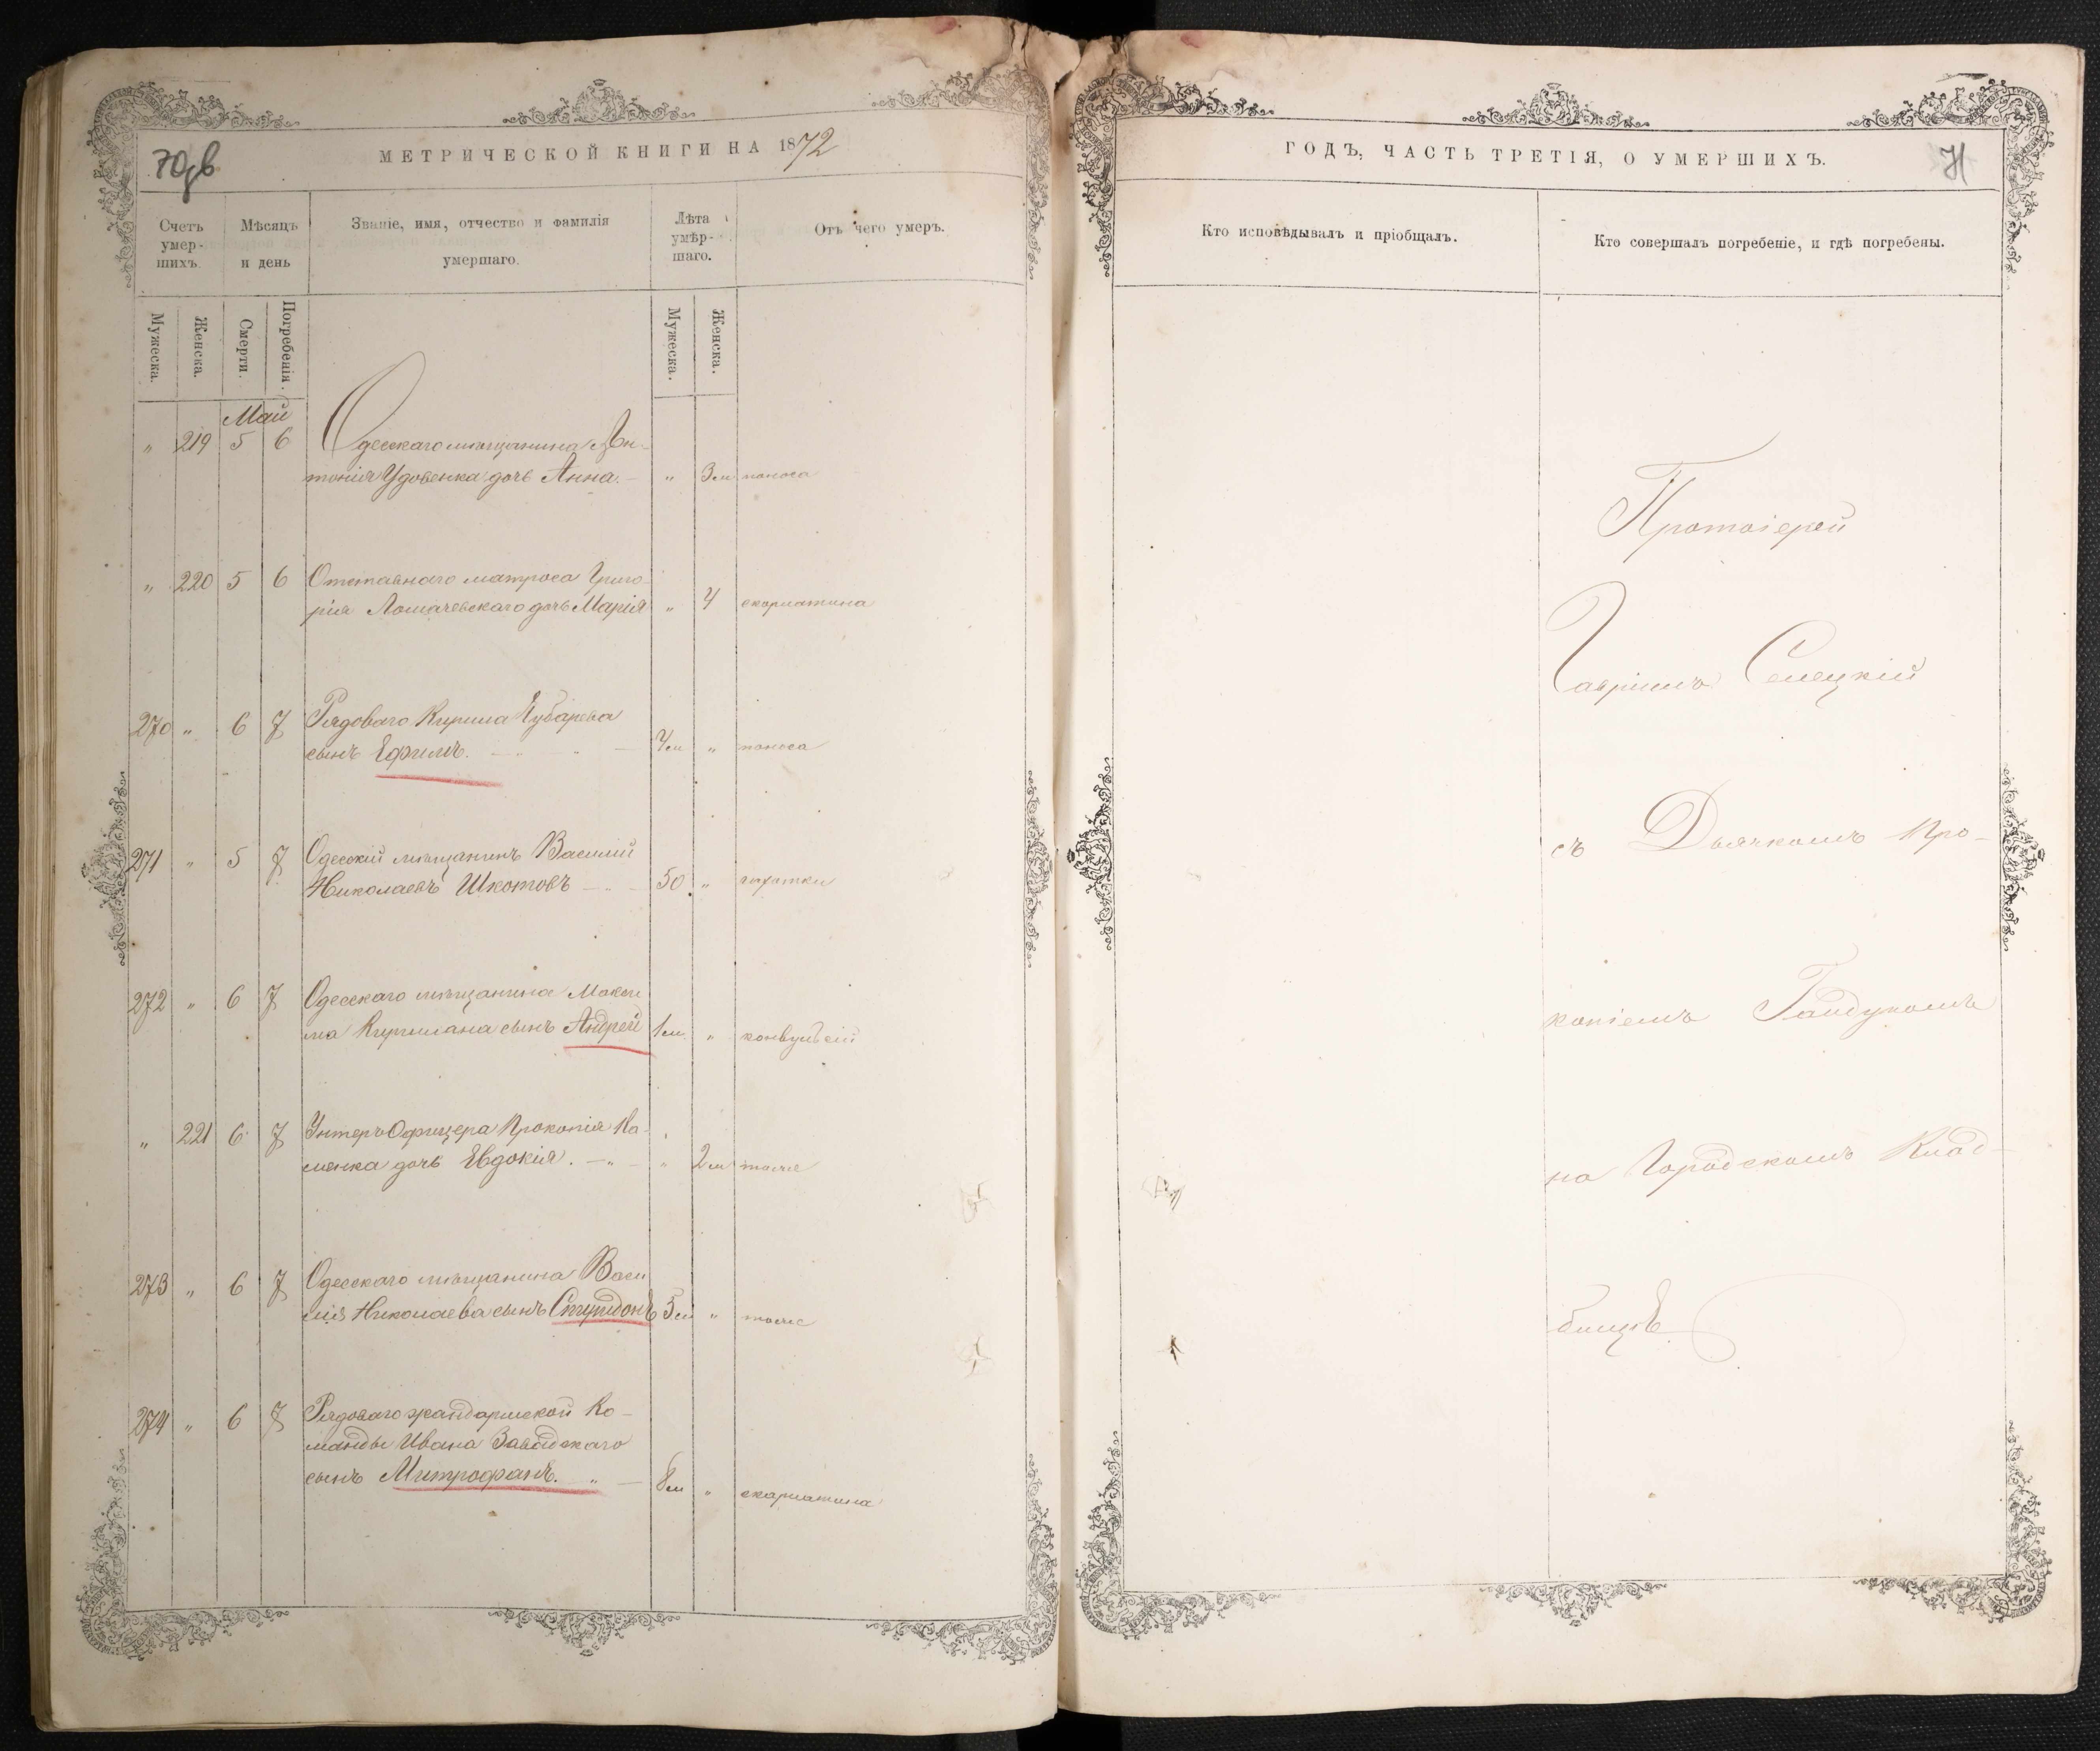 70 об
МЕТРИЧЕСКОЙ КНИГИ НА 1872
Счетъ умер-шихъ.
Мѣсяцъ и день
Званіе, имя, отчество и фамилія умершаго.
Лѣта умѣр-шаго.
Отъ чего умеръ.
Мужеска.
Женска.
Смерти.
Погребенія.
Мужеска.
Женска.
Май
" 219 5 6 Одесскаго мѣщанина Ан-
тонія Удовенка дочь Анна. " 3 м поноса
" 220 5 6 Отставнаго матроса Григо-
рія Ломачевскаго дочь Марія " 4 скарлатина
270 " 6 7 Рядоваго Кирила Губарева
сынъ Ефимъ. 4 м " поноса
271 " 5 7 Одесскій мѣщанинъ Василій
Николаевъ Шкотовъ 50 " чахотки
272 " 6 7 Одесскаго мѣщанина Макси
ма Киримана сынъ Андрей 1 м " конвульсій
" 221 6 7 Унтеръ Офицера Прокопія Ка-
менка дочь Евдокія. " 2 м тоже
273 " 6 7 Одесскаго мѣщанина Васи
лія Николаева сынъ Спиридонъ 5 м " тоже
274 " 6 7 Рядоваго жандармской Ко-
манды Ивана Завадскаго
сынъ Митрофанъ. 8 м " скарлатина
ГОДЪ, ЧАСТЬ ТРЕТІЯ, О УМЕРШИХЪ.
71
Кто исповѣдывалъ и пріобщалъ.
Кто совершалъ погребеніе, и гдѣ погребены.
Протоіерей
Гавріилъ Селецкій
съ Дьячкомъ Про-
копіемъ Гайдукомъ
на Городскомъ Клад-
бищѣ